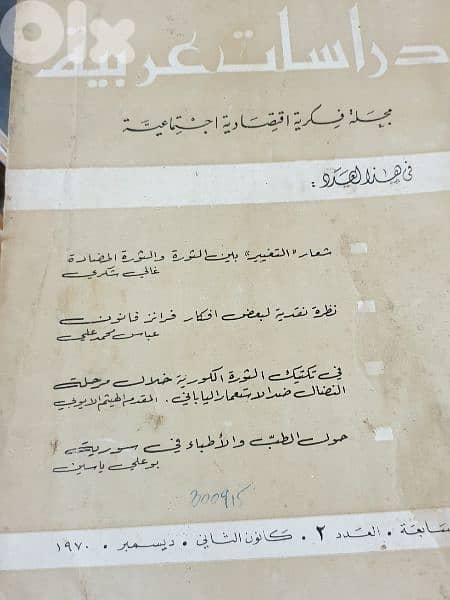 olx
دراسات عربية
مجلة فكرية اقتصادية اجتماعية
في هذا العدد :
شعار «التغيير» بين الثورة والثورة المضادة
غالي شكري
نظرة نقدية لبعض افكار فرانز فانون
عباس محمد علي
في تكتيك الثورة الكورية خلال مرحلة
النضال ضد الاستعمار الياباني . المقدم الهيثم الايوبي
حول الطب والأطباء في سورية
بوعلي ياسين
300915
سابعة • العدد ٢ • كانون الثاني • ديسمبر • ١٩٧٠